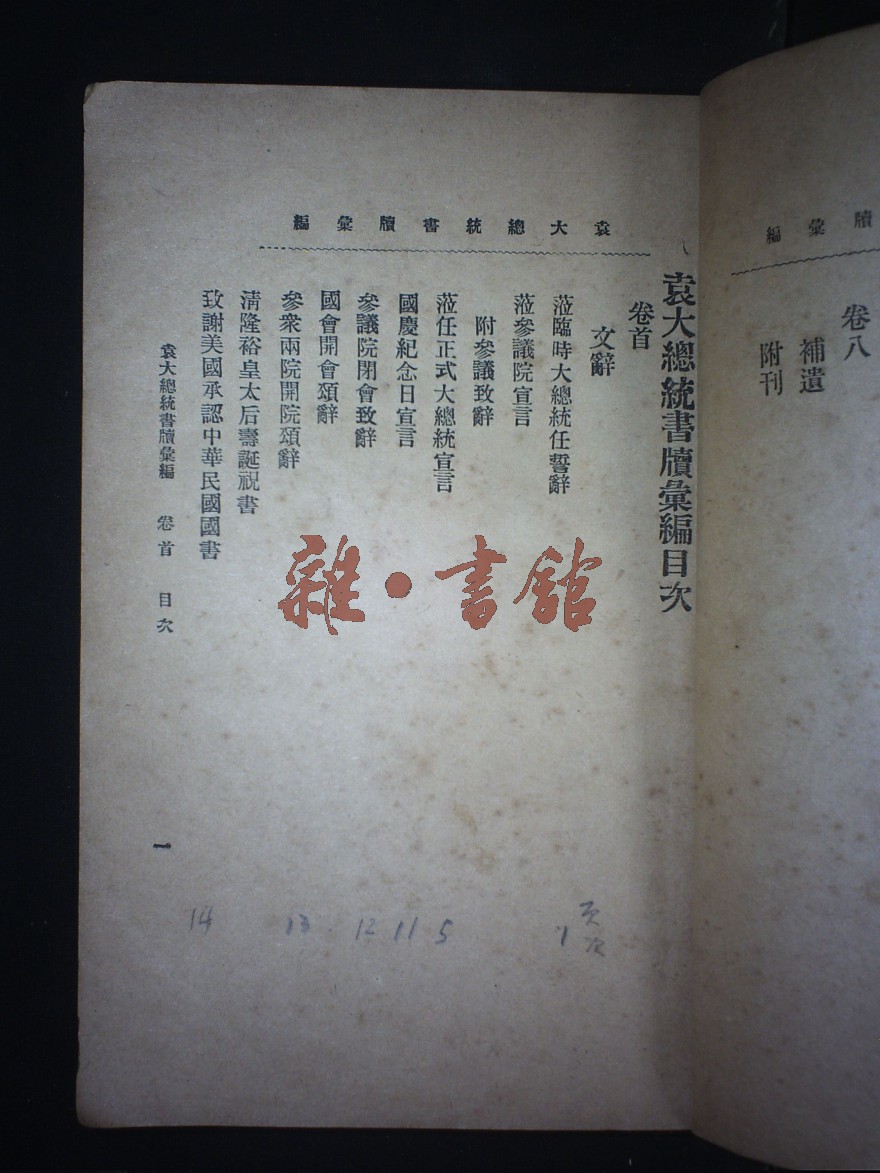 牘彙編
卷八
補遺
附刊
袁大總統書牘彙編
袁大總統書牘彙編目次
卷首
文辭
蒞臨時大總統任誓辭
蒞參議院宣言
附參議致辭
蒞任正式大總統宣言
國慶紀念日宣言
參議院閉會致辭
國會開會頌辭
參衆兩院開院頌辭
清隆裕皇太后壽誕祝書
致謝美國承認中華民國國書
袁大總統書牘彙編 卷首 目次
一
頁次
1
5
11
12
13
14
雜·書館